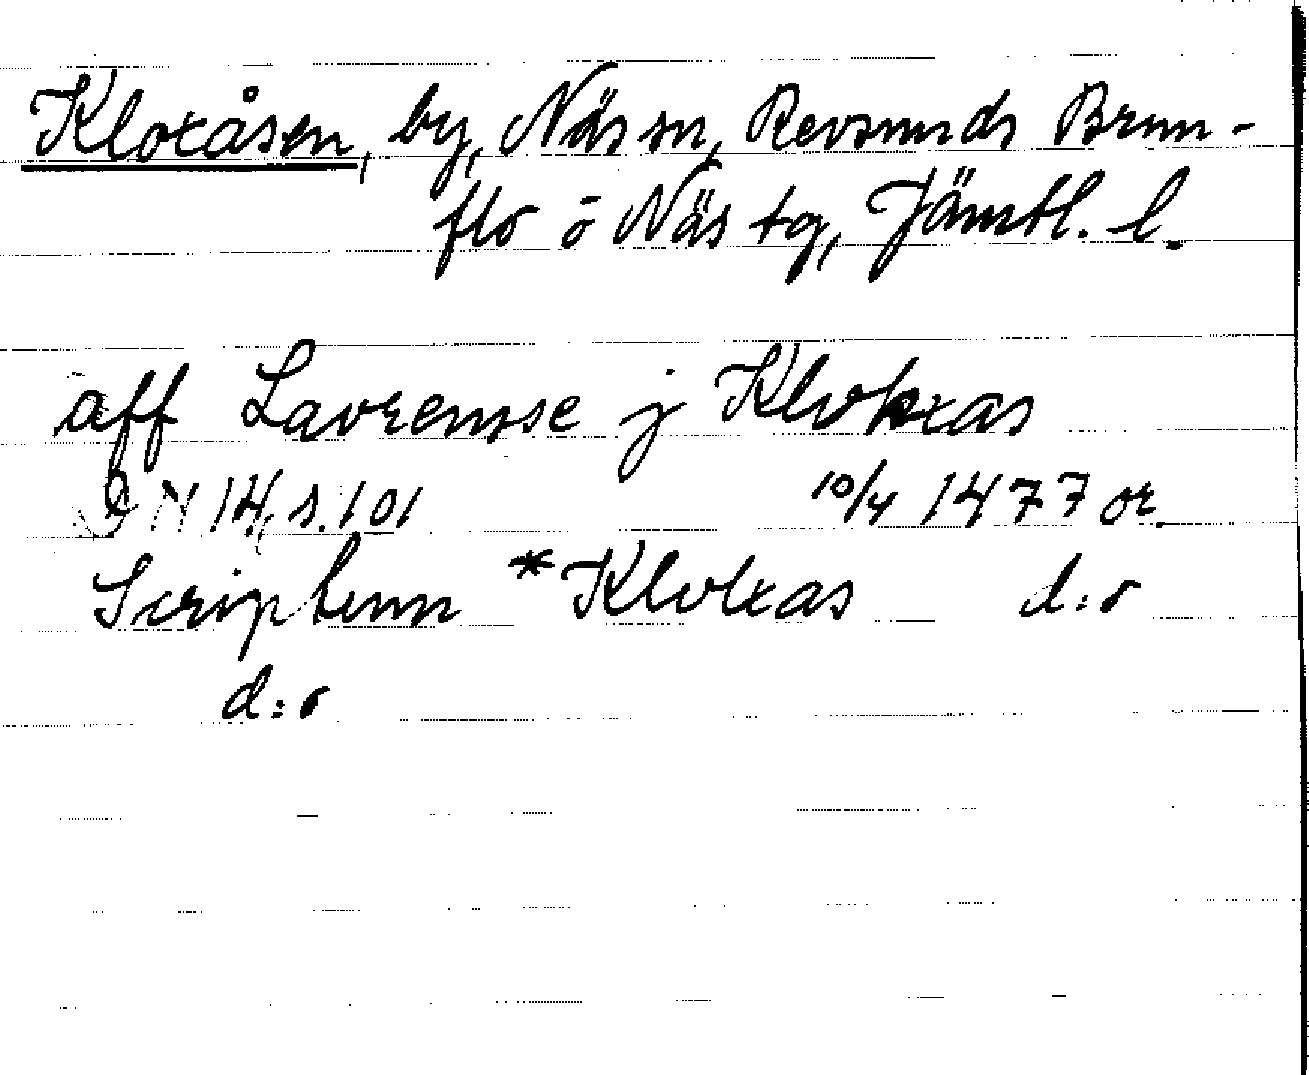 Kloxåsen, by, Näs sn, Revsunds Brun-
flo o Näs tg, Jämtl. l.
aff Laurensse j Klokxas
DN 14, s. 101 10/4 1477 or.
Scriptum *Klokxas d:o
d:o